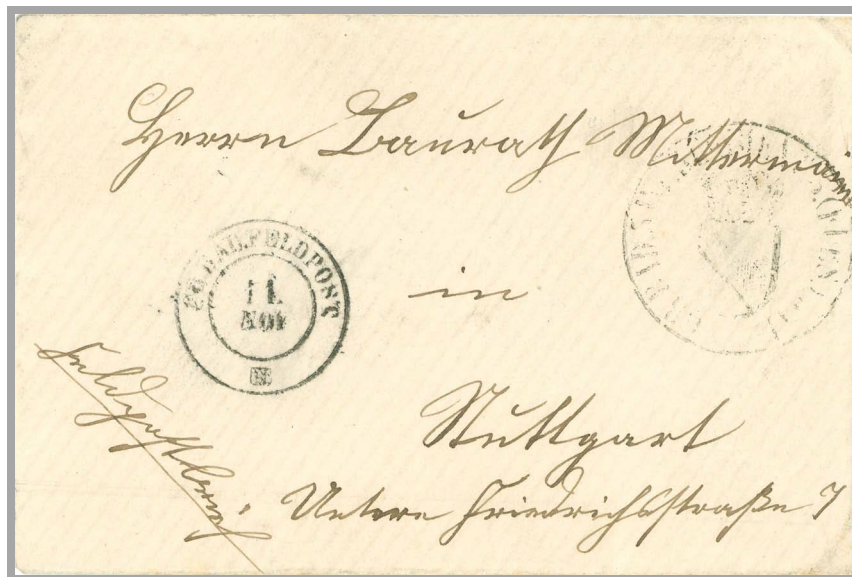 Herrn Baurath Mittermaier
GR.BAD.FELDPOST
11.
NOV
in
Feldpostbrief
Stuttgart
Untere Friedrichsstraße 7